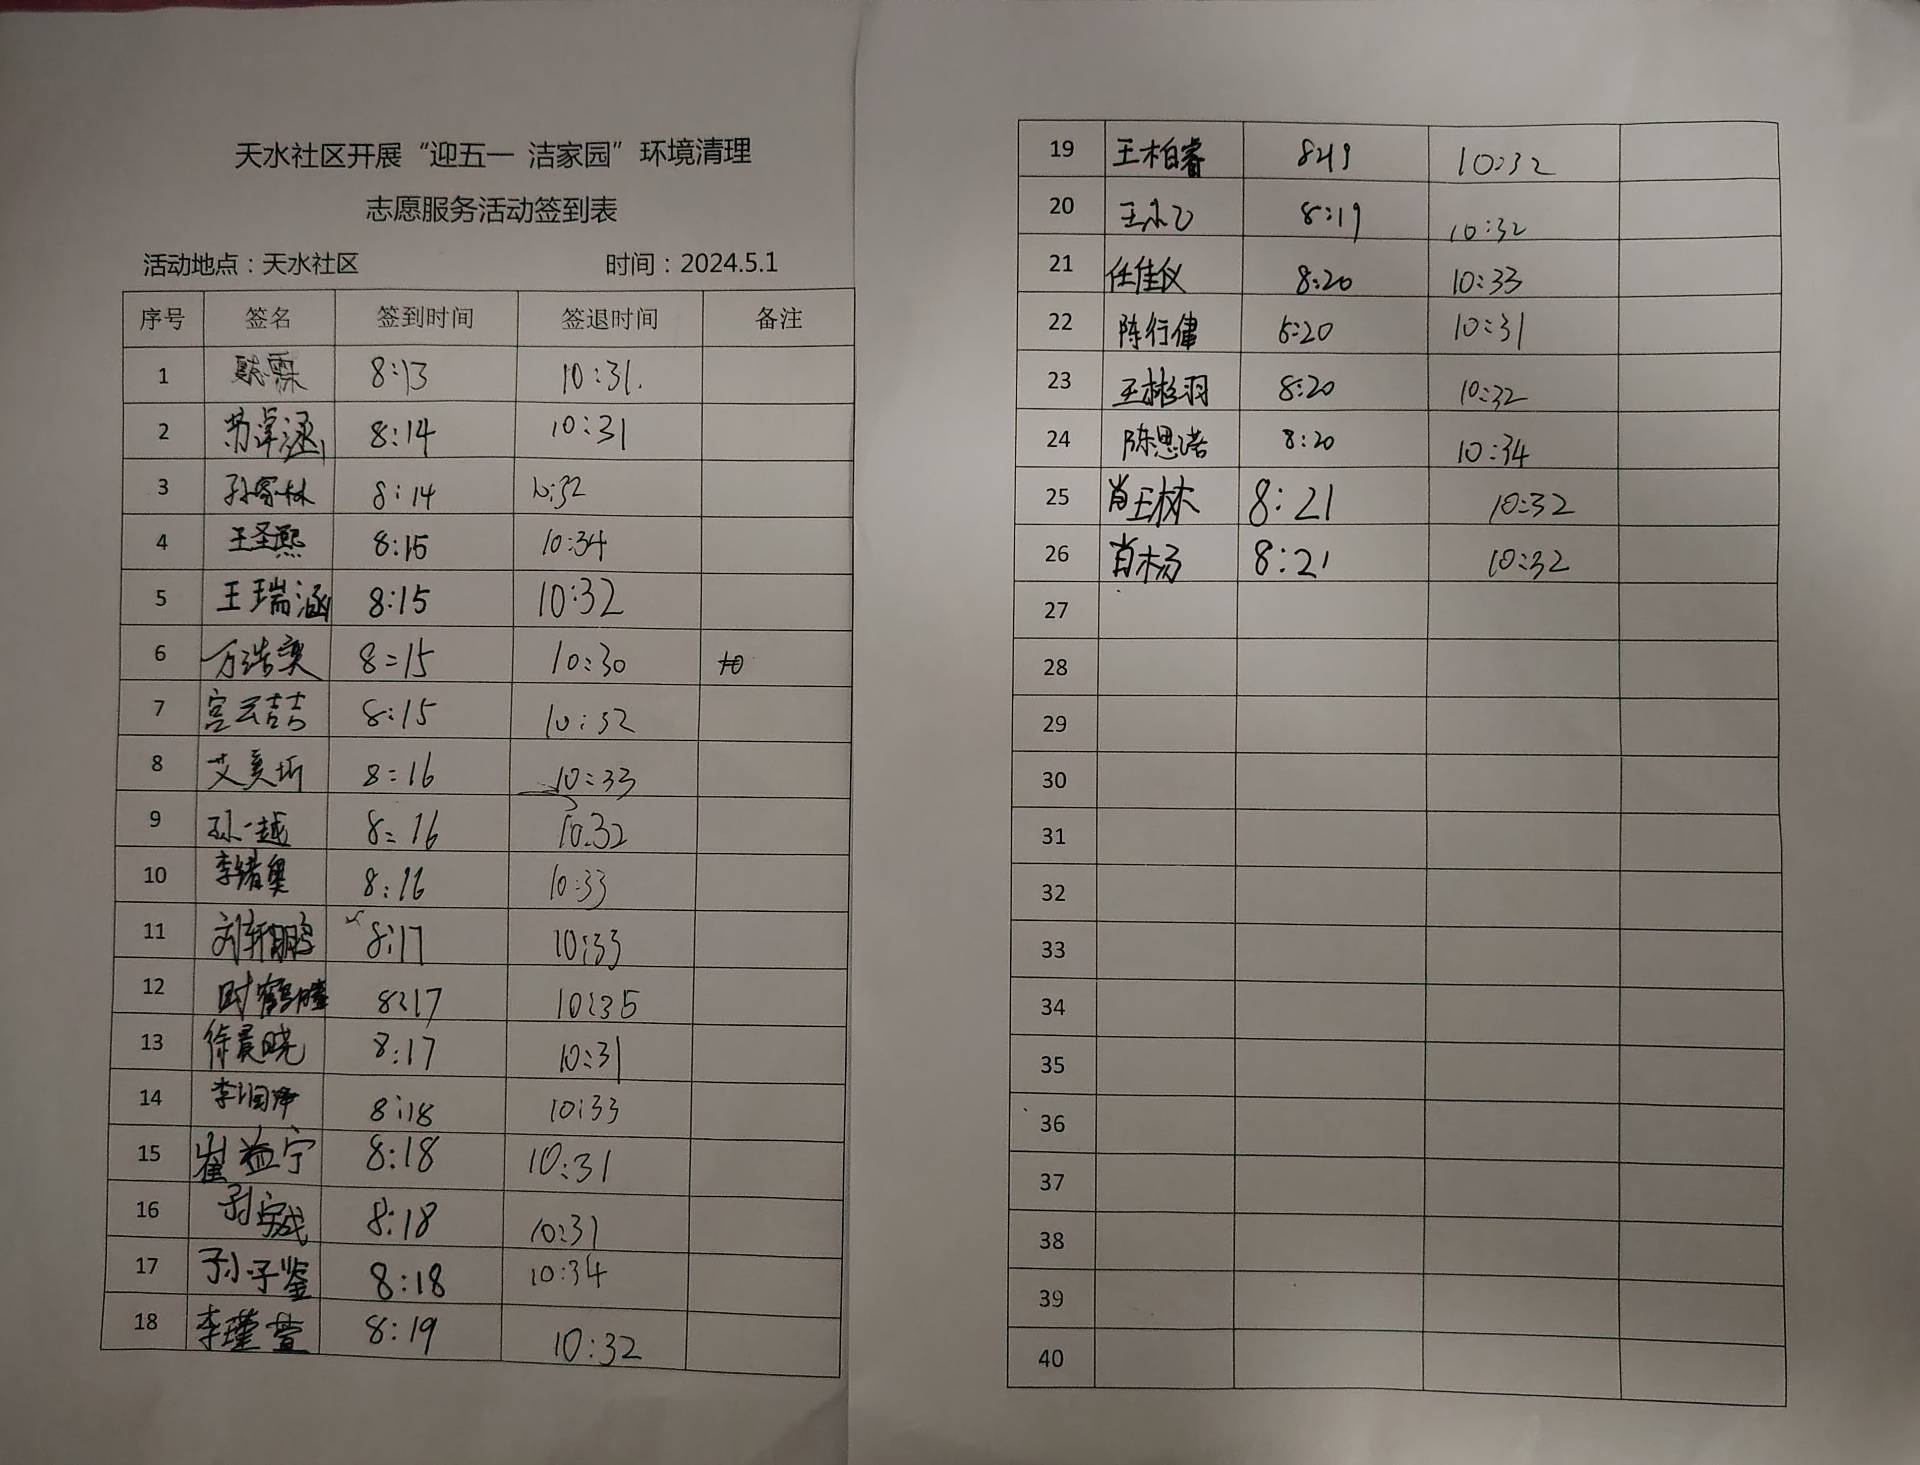 天水社区开展“迎五一 洁家园”环境清理
志愿服务活动签到表
活动地点：天水社区 时间：2024.5.1
序号 签名 签到时间 签退时间 备注
1 8:13 10:31.
2 苏卓涵 8:14 10:31
3 孙家林 8:14 10:32
4 王圣熙 8:15 10:34
5 王瑞涵 8:15 10:32
6 万浩奕 8:15 10:30
7 宫云喆 8:15 10:32
8 艾夏圻 8:16 10:33
9 孙一越 8:16 10:32
10 李锗奥 8:16 10:33
11 刘轩鹏 8:17 10:33
12 时鹤腾 8:17 10:35
13 徐晨晓 8:17 10:31
14 李润泽 8:18 10:33
15 崔益宁 8:18 10:31
16 8:18 10:31
17 孙子鉴 8:18 10:34
18 李瑾萱 8:19 10:32
19 王柏睿 8:19 10:32
20 王永乙 8:19 10:32
21 任佳仪 8:20 10:33
22 陈行健 8:20 10:31
23 王彬羽 8:20 10:32
24 陈思诺 8:20 10:34
25 肖王栋 8:21 10:32
26 肖杨 8:21 10:32
27
28
29
30
31
32
33
34
35
36
37
38
39
40